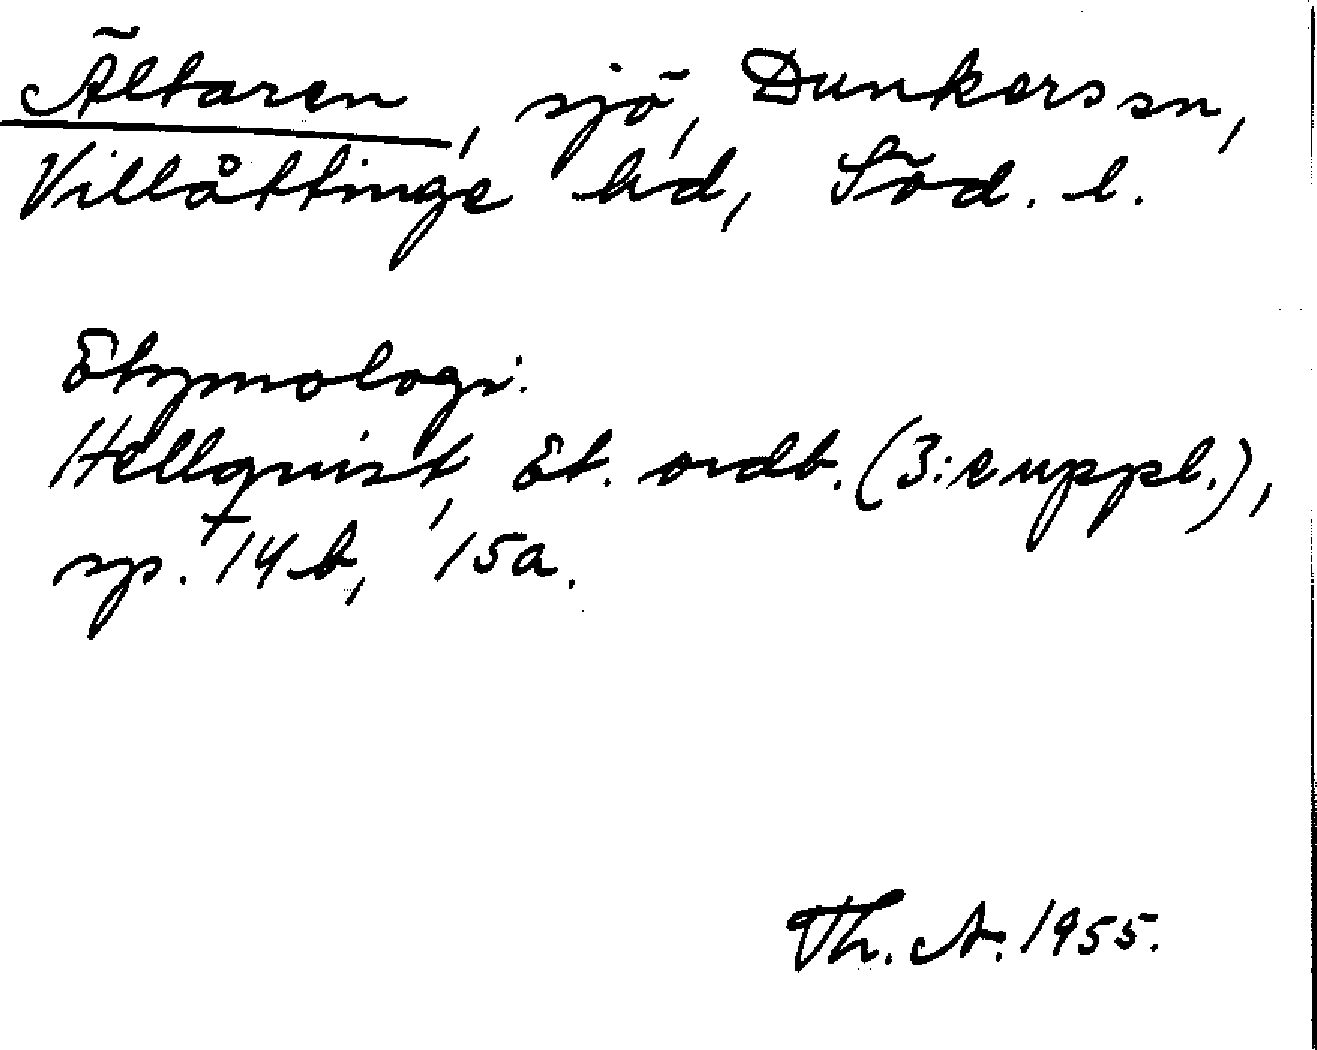 Ältaren, sjö, Dunkers sn,
Villåttinge hd, Söd. l.
Etymologi.
Hellquist, Et. ordb. (3:e uppl.),
sp. 14 b, 15a.
Th. A. 1955.